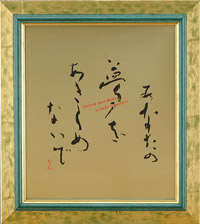 あなたの
夢を
あきらめ
ないで